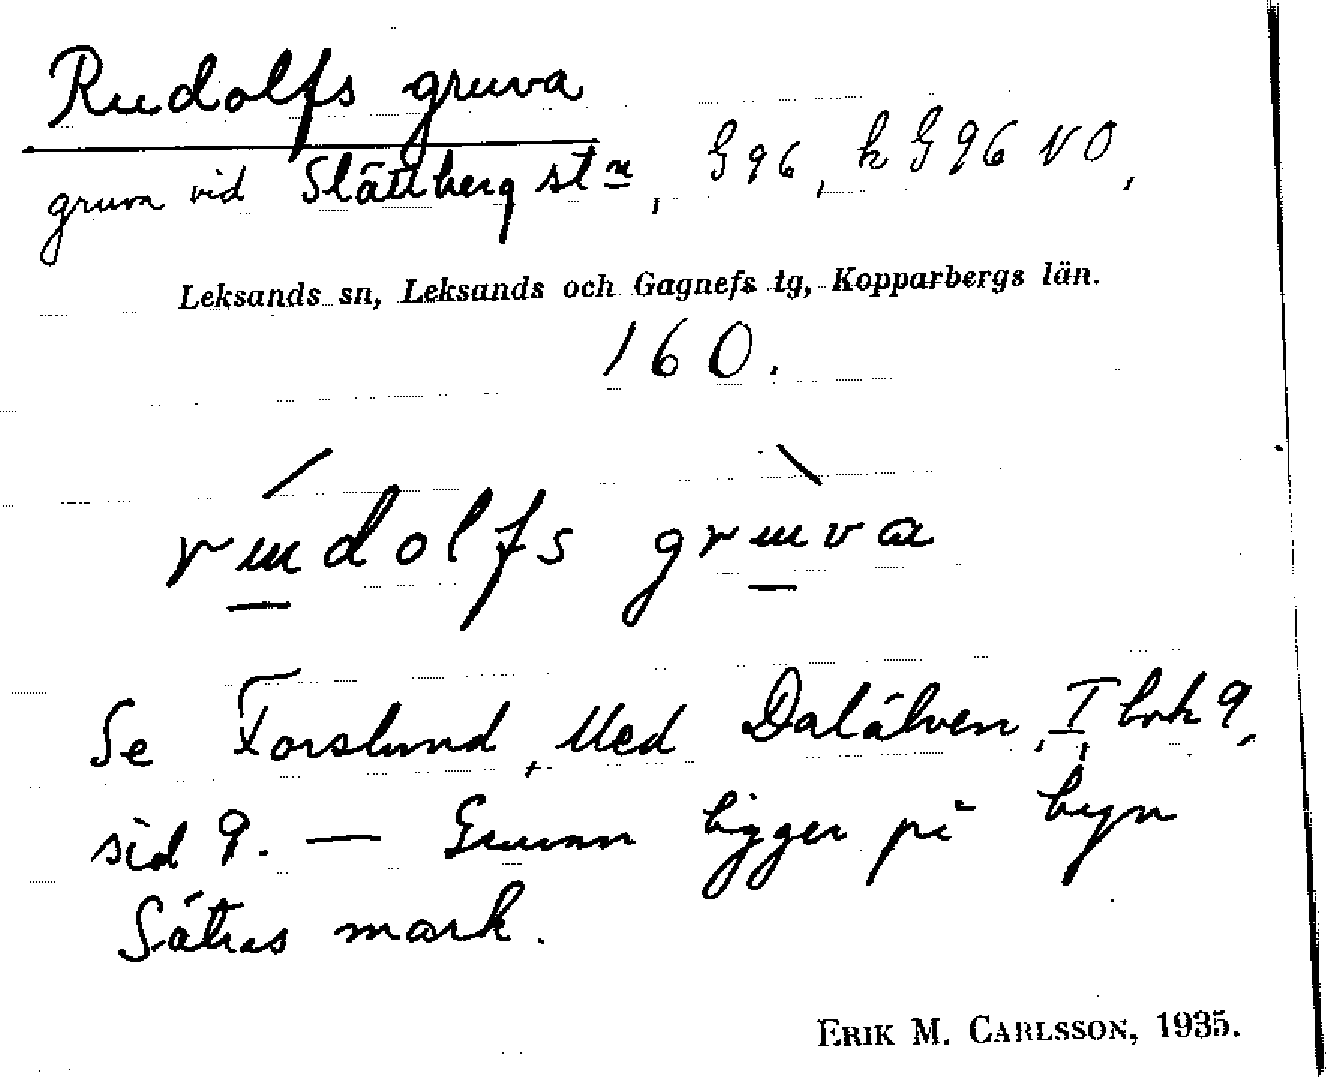 Rudolfs gruva
gruva vid Slättberg stn, G96, k G96 VO,
Leksands sn, Leksands och Gagnefs tg, Kopparbergs län.
160.
rudolfs gruva
Se Forslund, Med Dalälven, I, bok 9,
sid 9. — Gruvan ligger på byn
Sätras mark.
ERIK M. CARLSSON, 1935.